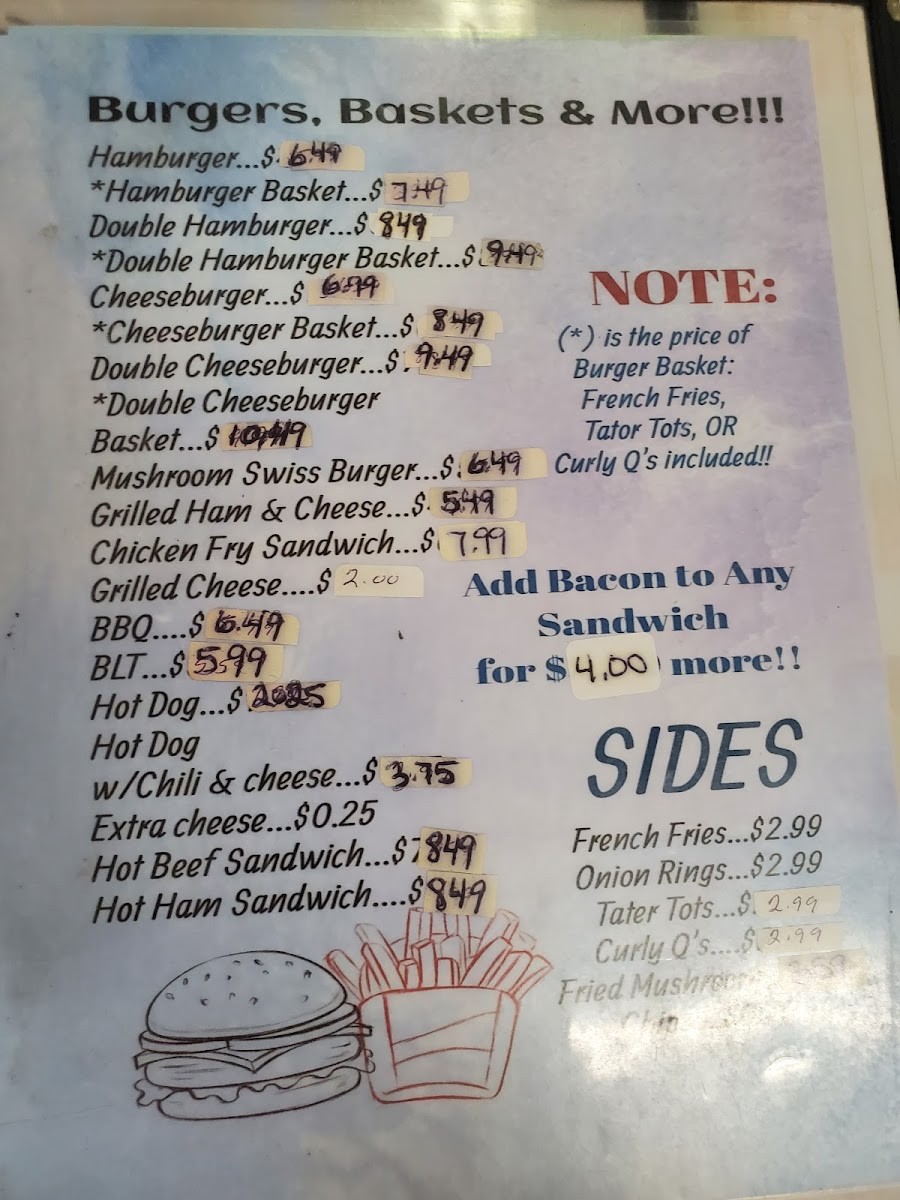 Burgers, Baskets & More!!!
Hamburger...$ 6.49
*Hamburger Basket...$ 7.49
Double Hamburger...$ 849
*Double Hamburger Basket...$ 9.49
Cheeseburger...$ 6.99
*Cheeseburger Basket...$ 849
Double Cheeseburger...$ 9.49
*Double Cheeseburger
Basket...$ 10.49
Mushroom Swiss Burger...$ 6.49
Grilled Ham & Cheese...$ 5.49
Chicken Fry Sandwich...$ 7.99
Grilled Cheese....$ 2.00
BBQ....$ 6.49
BLT...$ 5.99
Hot Dog...$
Hot Dog
w/Chili & cheese...$ 3.75
Extra cheese...$0.25
Hot Beef Sandwich...$7 849
Hot Ham Sandwich....$ 849
NOTE:
(*) is the price of
Burger Basket:
French Fries,
Tator Tots, OR
Curly Q's included!!
Add Bacon to Any
Sandwich
for $ 4.00 more!!
SIDES
French Fries...$2.99
Onion Rings...$2.99
Tater Tots...$ 2.99
Curly Q's....$ 2.99
Fried